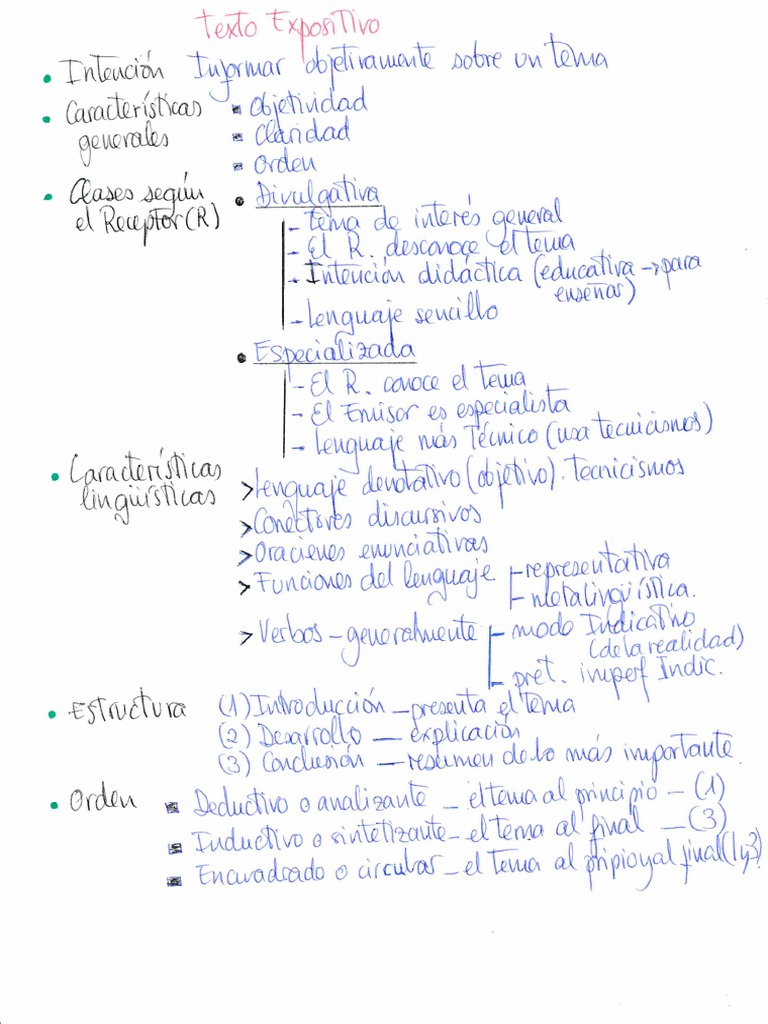 Texto Expositivo
• Intención Informar objetivamente sobre un tema
• Características generales
▪ Objetividad
▪ Claridad
▪ Orden
• Clases según el Receptor (R)
• Divulgativa
- tema de interés general
- El R. desconoce el tema
- Intención didáctica (educativa → para enseñar)
- Lenguaje sencillo
• Especializada
- El R. conoce el tema
- El Emisor es especialista
- Lenguaje más Técnico (usa tecnicismos)
• Características lingüísticas
> Lenguaje denotativo (objetivo). Tecnicismos
> Conectores discursivos
> Oraciones enunciativas
> Funciones del lenguaje
- representativa
- metalingüística.
> Verbos - generalmente
- modo Indicativo (de la realidad)
- pret. imperf Indic.
• Estructura
(1) Introducción - presenta el tema
(2) Desarrollo - explicación
(3) Conclusión - resumen de lo más importante.
• Orden
▪ Deductivo o analizante - el tema al principio - (1)
▪ Inductivo o sintetizante - el tema al final - (3)
▪ Encuadrado o circular - el tema al pripio y al final (1 y 3)